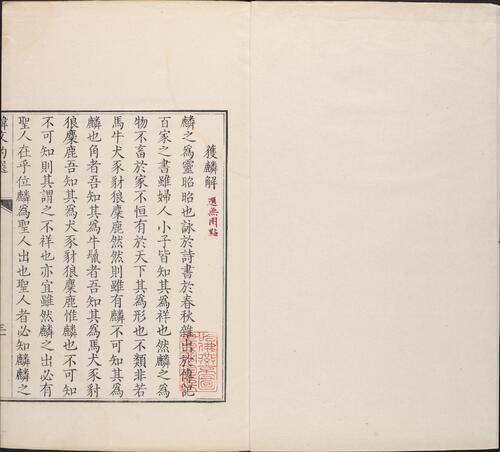 獲麟解
選無圈點
麟之為靈昭昭也詠於詩書於春秋雜出於傳記
百家之書雖婦人小子皆知其為祥也然麟之為
物不畜於家不恒有於天下其為形也不類非若
馬牛犬豕豺狼麋鹿然然則雖有麟不可知其為
麟也角者吾知其為牛鬣者吾知其為馬犬豕豺
狼麋鹿吾知其為犬豕豺狼麋鹿惟麟也不可知
不可知則其謂之不祥也亦宜雖然麟之出必有
聖人在乎位麟為聖人出也聖人者必知麟麟之